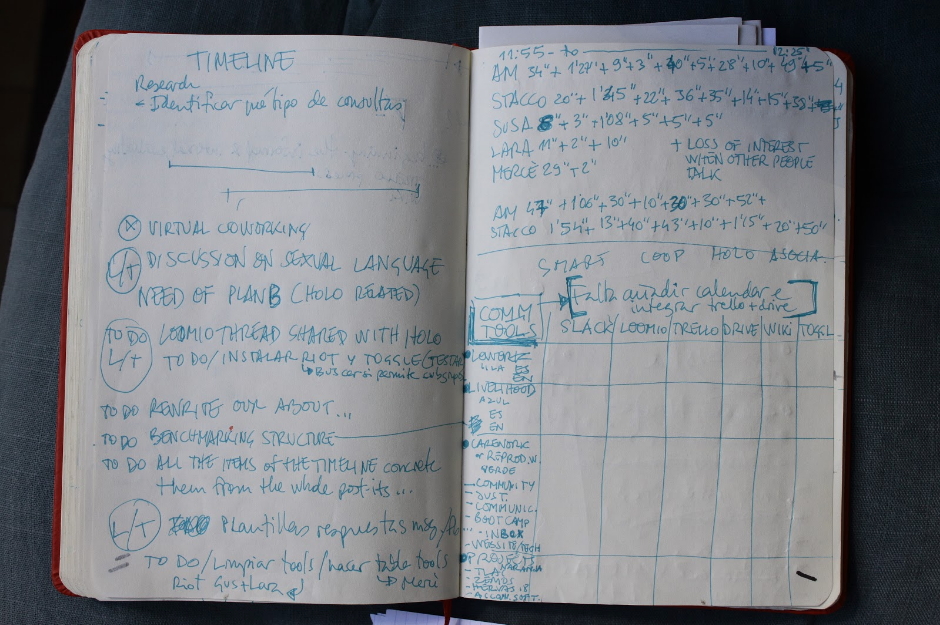 TIMELINE
Research
Identificar qué tipo de consultas
VIRTUAL COWORKING
L/T DISCUSSION ON SEXUAL LANGUAGE
NEED OF PLAN B (HOLO RELATED)
TO DO LOOMIO THREAD SHARED WITH HOLO
L/T TO DO/INSTALAR RIOT Y TOGGLE/TESTAR
Buscar si permite subgrups
TO DO REWRITE OUR ABOUT...
TO DO BENCHMARKING STRUCTURE
TO DO ALL THE ITEMS OF THE TIMELINE concrete
them from the whole post-its...
L/T Plantillas respuestas
TO DO/Limpiar tools/hacer table tools
Riot Gus+Lara Mercè
11:55 - to 12:25
AM 34"+ 1'27"+ 9"+3"+ 5"+28"+10"+49"+5"
STACCO 20"+ +22"+ 36"+35"+14"+15"+
SUSA +3"+1'08"+5"+5"+5"
LARA 11"+2"+10"
MERCÈ 29"+2"
+ LOSS OF INTEREST
WHEN OTHER PEOPLE
TALK
AM + 1'06"+30"+10"+30"+30"+52"+
STACCO 1'54"+13"+40"+43"+10"+1'15"+20"+50"
SMART LOOP HOLO ASOCIA
Falta añadir calendar e
integrar trello+drive
COMM
TOOLS
SLACK LOOMIO TRELLO DRIVE WIKI TOGGL
LILA ES
EN
LIVELIHOOD
AZUL
ES
EN
CAREWORK
or REPROD.W.
VERDE
-COMMUNITY
- SUST.
- COMMUNIC.
- BOOTCAMP
- INBOX
- WEBSITE/TECH
PROJECTS
NARANJA
- ZEMOS